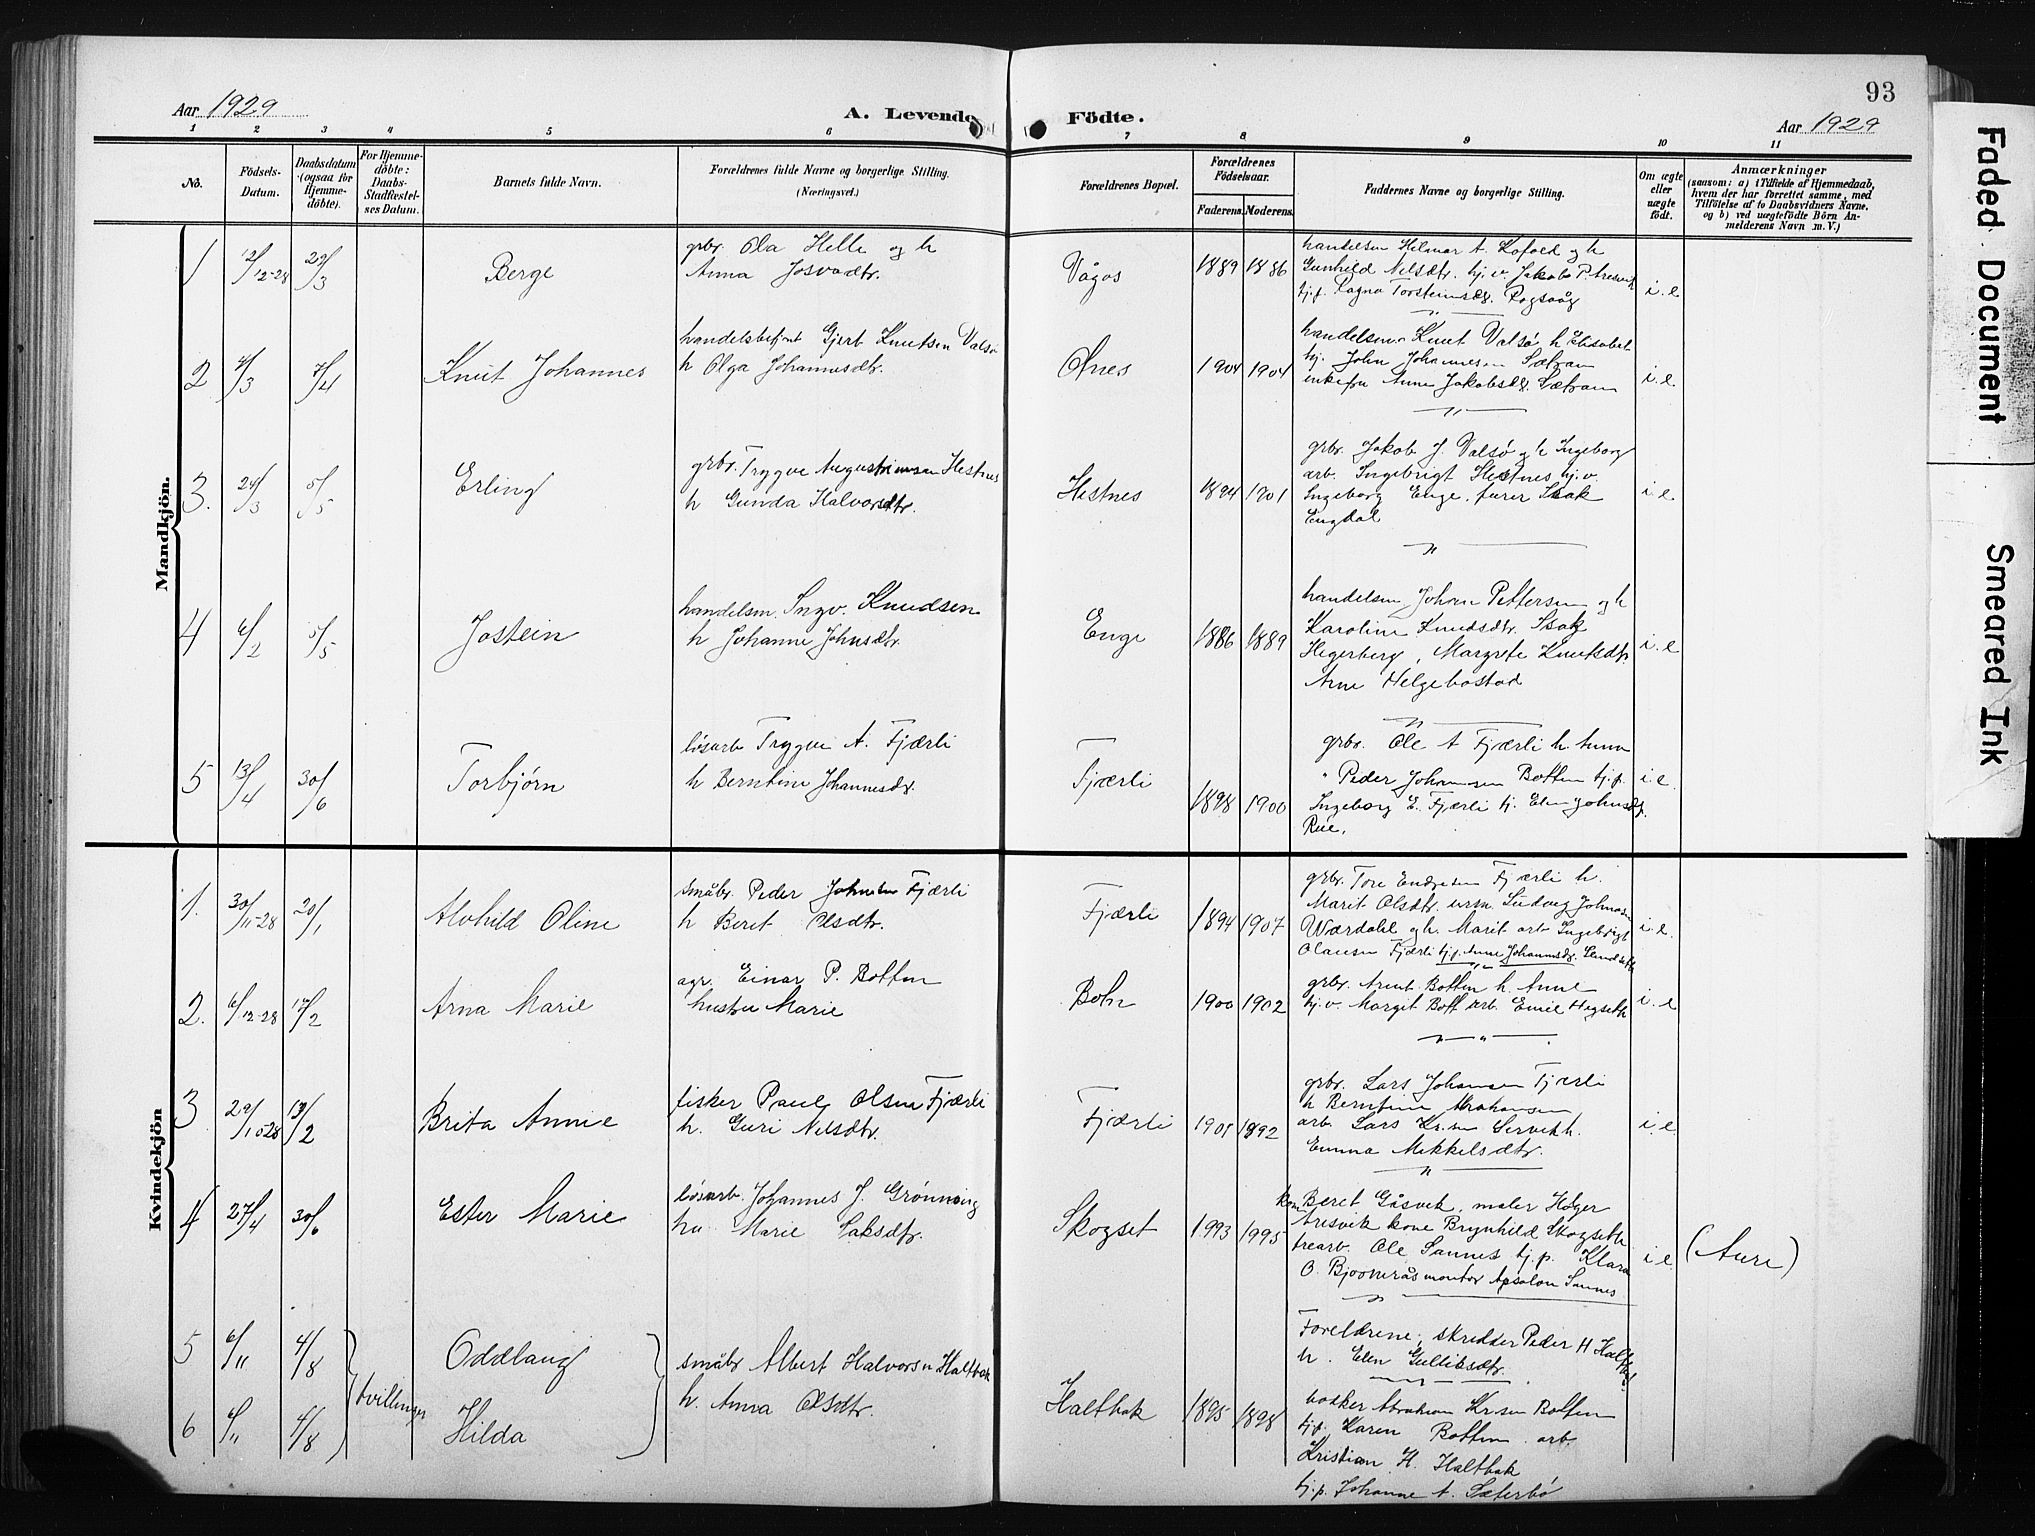 93
Aar 1929
A. Levende Födte.
Aar 1929
1 2 3 4 5 6 7 8 9 10 11
No.
Födsels-
Datum.
Daabsdatum
(ogsaa for
Hjemme-
döbte).
For Hjemme-
döbte:
Daabs-
Stadfæstel-
ses Datum.
Barnets fulde Navn.
Forældrenes fulde Navne og borgerlige Stilling.
(Næringsvei.)
Forældrenes Bopæl.
Forældrenes
Födselsaar.
Faderens. Moderens.
Faddernes Navne og borgerlige Stilling.
Om ægte
eller
uægte
født.
Anmærkninger
(saasom: a) i Tilfælde af Hjemmedaab,
hvem der har forrettet samme, med
Tilföielse af to Daabsvidners Navne.
og b) ved uægtefödte Börn An-
melderens Navn m. V.)
Mandkjön.
1 12/12-28 29/3 Berge
grbr. Ola Helle og h
Anna Josvadtr.
Vågos 1889 1886
handelsm Hilmar A. Kofoed og h
Gunhild Nilsdtr. hj. v. Jakob P. Aresvik
tj.p. Ragna Torsteinsdtr. Rogsvåg
i.e.
2 4/3 7/4 Knut Johannes
handelsbetjnt Gjert Knutsen Valsø
h Olga Johannesdtr.
Ønes 1904 1904
handelsm. Knut Valsø h Elisabet
hj. John Johannesen Sætran
enkefru Anne Jakobsdtr. Sætran
i.e.
3. 24/3 5/5 Erling
grbr. Trygve Augustinusen Hestnes
h Gunda Halvorsdtr.
Hestnes 1894 1901
grbr. Jakob J. Valsø og h Ingeborg
arb. Ingebrigt Hestnes hj. v.
Ingeborg Enge, furer Isak
Engdal
i.e.
4 6/2 5/5 Jostein
handelsm. Ingv. Knudsen
h Johanne Johnsdtr.
Enge 1886 1889
handelsm Johan Pettersen og h
Karoline Knudsdtr. Isak
Hegerberg, Margrete Knutsdtr
Arne Helgebostad
i.e.
5 13/4 30/6 Torbjørn
løsarb Trygve A. Fjærli
h Berntine Johannesdtr.
Fjærli 1898 1900
grbr. Ole A Fjærli h. Anna
" Peder Johansen Botten tj.p.
Ingeborg E. Fjærli tj. Elen Johnsdtr.
Rue.
i.e.
Kvindekjön
1. 30/11-28 20/1 Alvhild Oline
småbr. Peder Johnsen Fjærli
h Beret Olsdtr.
Fjærli 1894 1907
grbr. Tore Endresen Fjærli h.
Marit Olsdtr. urm. Ludvig Johnsen
Wærdahl og h. Marit arb Ingebrigt
Olausen Fjærli tj.p. Anne Johannesdtr.
i.e.
2. 6/12-28 17/2 Arna Marie
agr. Einar P. Botten
hustru Marie
Botn 1900 1902
grbr. Arnt Botten h. Anne
tj. v. Margit Bott arb. Emil Hegseth
i.e.
3 29/10-28 17/2 Brita Annie
fisker Paul Olsen Fjærli
h. Guri Nilsdtr.
Fjærli 1901 1892
grbr. Lars Johansen Fjærli
h Berntine Abrahamsen
arb. Lars Kr.sen Servik h.
Emma Mikkelsdtr.
i.e.
4 27/4 30/6 Ester Marie
løsarb. Johannes J. Grønning
hu Marie Isaksdtr.
Skogset 1993 1995
kone Beret Gåsvik, maler Holger
Aresvik kone Brynhild Skogseth
trearb. Ole Sannes tj.p. Klara
O. Bjoonerås montør Apsolon Sannes
i.e. (Aure)
5 6/11 4/8 Oddlaug
6 6/11 4/8 Hilda
tvillinger
småbr Albert Halvorsen Haltbak
h. Anna Olsdtr.
Haltbak 1895 1898
Foreldrene, skredder Peder H Haltbak
h. Elen Gulliksdtr.
bøkker Abraham Kr.sen Botten
tj.p. Karen Botten arb.
Kristian H. Haltbak
tj.p. Johanne A. Sæterbø
Faded Document
Smeared Ink